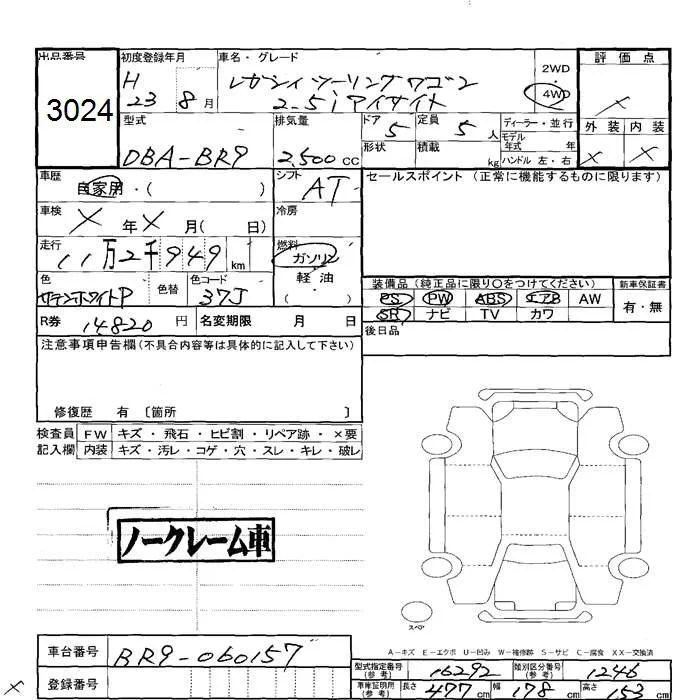 出品番号 初度登録年月 車名・グレード 評価点
3024 H 23 8月 レガシィツーリングワゴン 2WD
2.5i アイサイト 4WD ×
型式 排気量 ドア 5 定員 5人 ディーラー・並行 外装 内装
DBA-BR9 2,500cc 形状 積載 kg モデル年式 年 × ×
ハンドル 左・右
車歴 自家用・( ) シフト AT セールスポイント (正常に機能するものに限ります)
車検 × 年 × 月( 日) 冷房
走行 11万2千949km 燃料 ガソリン
軽・油
( )
色 サテンホワイトP 色替 色コード 37J
装備品 (純正品に限り○をつけてください) 新車保証書
PS PW ABS エアB AW 有・無
SR ナビ TV カワ
R券 14820円 名変期限 月 日 後日品
注意事項申告欄(不具合内容等は具体的に記入して下さい)
修復歴 有 〔箇所 〕
検査員 FW キズ・飛石・ヒビ割・リペア跡・×要
記入欄 内装 キズ・汚レ・コゲ・穴・スレ・キレ・破レ
ノークレーム車
スペア
A-キズ E-エクボ U-凹み W-補修跡 S-サビ C-腐食 XX-交換済
車台番号 BR9-060157 型式指定番号(参考) 16292 類別区分番号(参考) 1246
× 登録番号 車庫証明用(参考) 長さ 477cm 幅 178cm 高さ 153cm